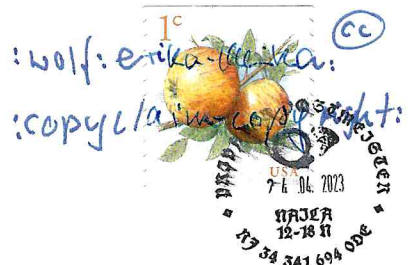 1c
cc
:wolf: erika-
:copyclaim-copyright:
USA
24.04.2023
NAILA
12-18 N
RJ 34 341 694 0DE